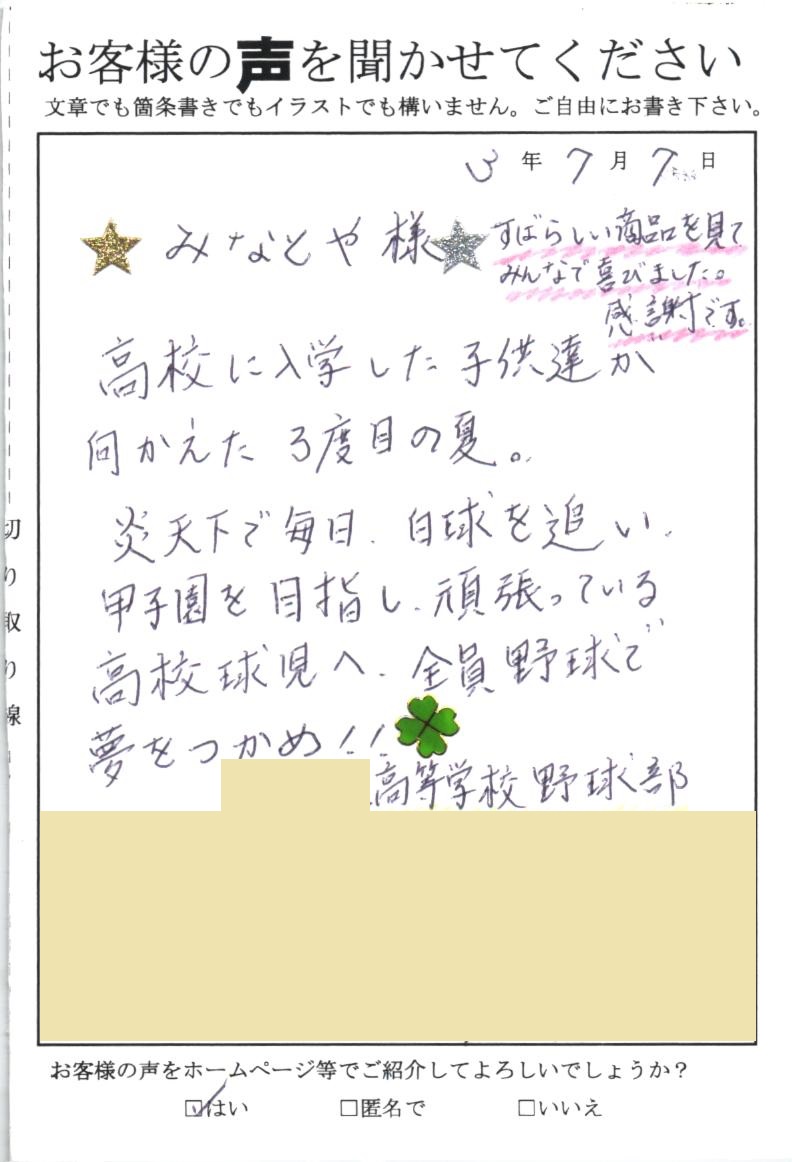 お客様の声を聞かせてください
文章でも箇条書きでもイラストでも構いません。ご自由にお書き下さい。
3年7月7日
みなとや様
すばらしい商品を見て
みんなで喜びました。
感謝です。
高校に入学した子供達が
向かえた3度目の夏。
炎天下で毎日、白球を追い、
甲子園を目指し、頑張っている
高校球児へ、全員野球で
夢をつかめ!!
高等学校野球部
切り取り線
お客様の声をホームページ等でご紹介してよろしいでしょうか？
☑はい □匿名で □いいえ